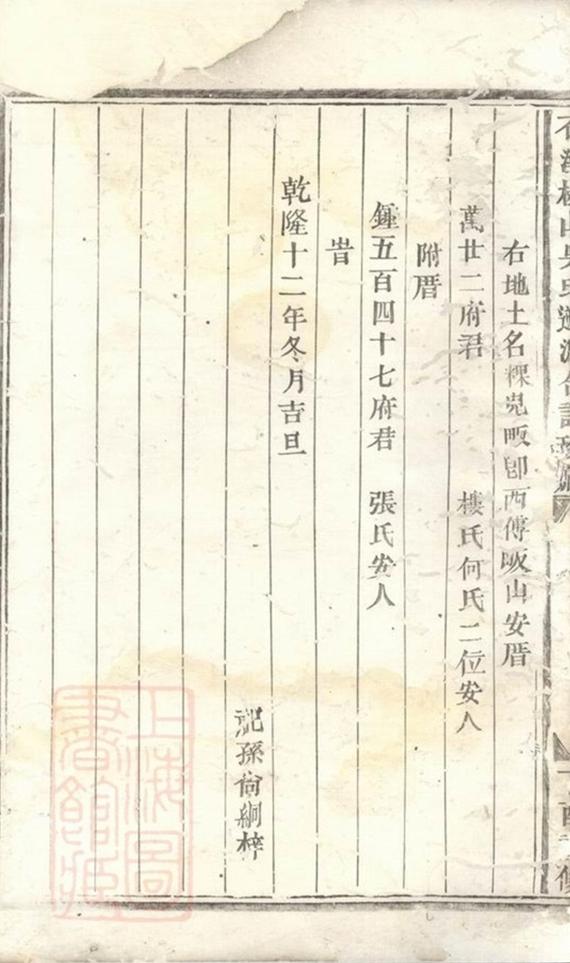 右地土名粿堍畈卽西傅畈山安厝
萬廿二府君　樓氏何氏二位安人
附厝
鍾五百四十七府君　張氏安人
旹
乾隆十二年冬月吉旦
孫尙絅梓
上海圖書館藏